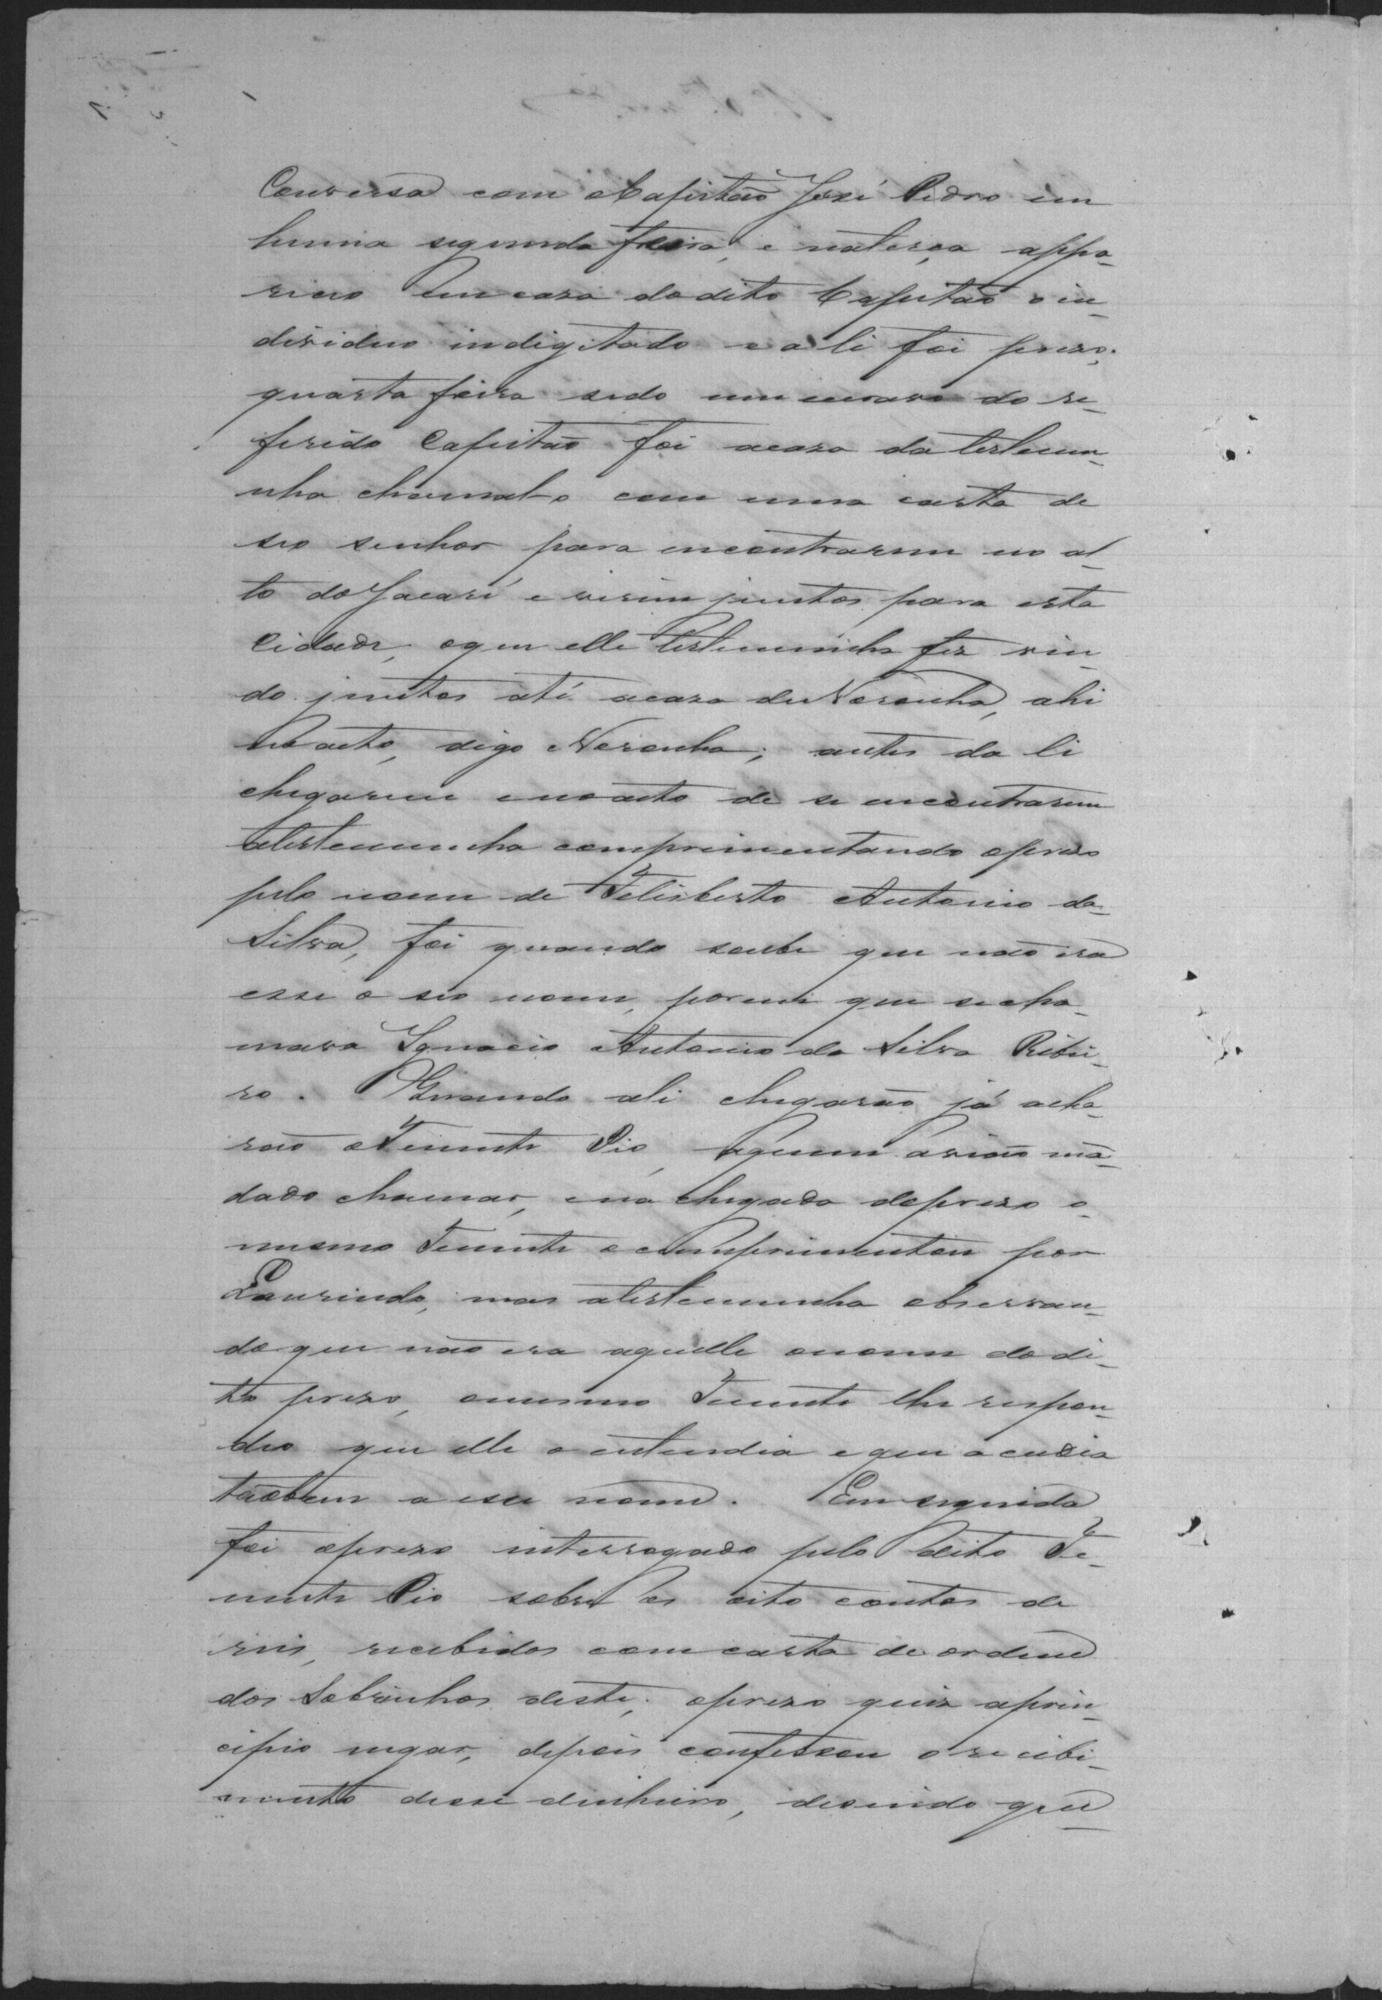 Conversa com o Capitão José Pedro em
huma segunda feira, e naterça appa-
ricio em caza dodito Capitão o in-
dividuo indigitado e ali foi prezo;
quarta feira sedo um escravo do re-
ferido Capitão foi acaza da testemu-
nha chamal-o com uma carta de
seo senhor para encontrarem no al-
to do Jacaré e virem juntos para esta
Cidade, oque elle testemunha fez vin-
do juntos até acaza de Noronha, ahi
no acto, digo Noronha; antes da li
chegarem e no acto de se encontrarem
atestemunha comprimentando oprezo
pelo nome de Felisberto Antonio da
Silva, foi quando soube que não era
esse o seo nome, porem que se cha-
mava Ignacio Antonio da Silva Ribei-
ro. Quando ali chegarão já acha-
rão o Tenente Pio, aquem avião mã-
dado chamar, e na chegada doprezo o
mesmo Tenente o comprimentou por
Laurindo, mas atestemunha observan-
do que não era aquelle onome do di-
to prezo, omesmo Tenente lhe respon-
deo que elle o entendia e que acudia
tãobem a esse nome. Em seguida
foi oprezo interrogado pelo dito Te-
nente Pio sobre os oito contos de
reis, recebidos com carta de ordem
dos Sobrinhos deste; oprezo quiz aprin-
cipio negar, depois confessou o recibi-
mento desse dinheiro, disendo que